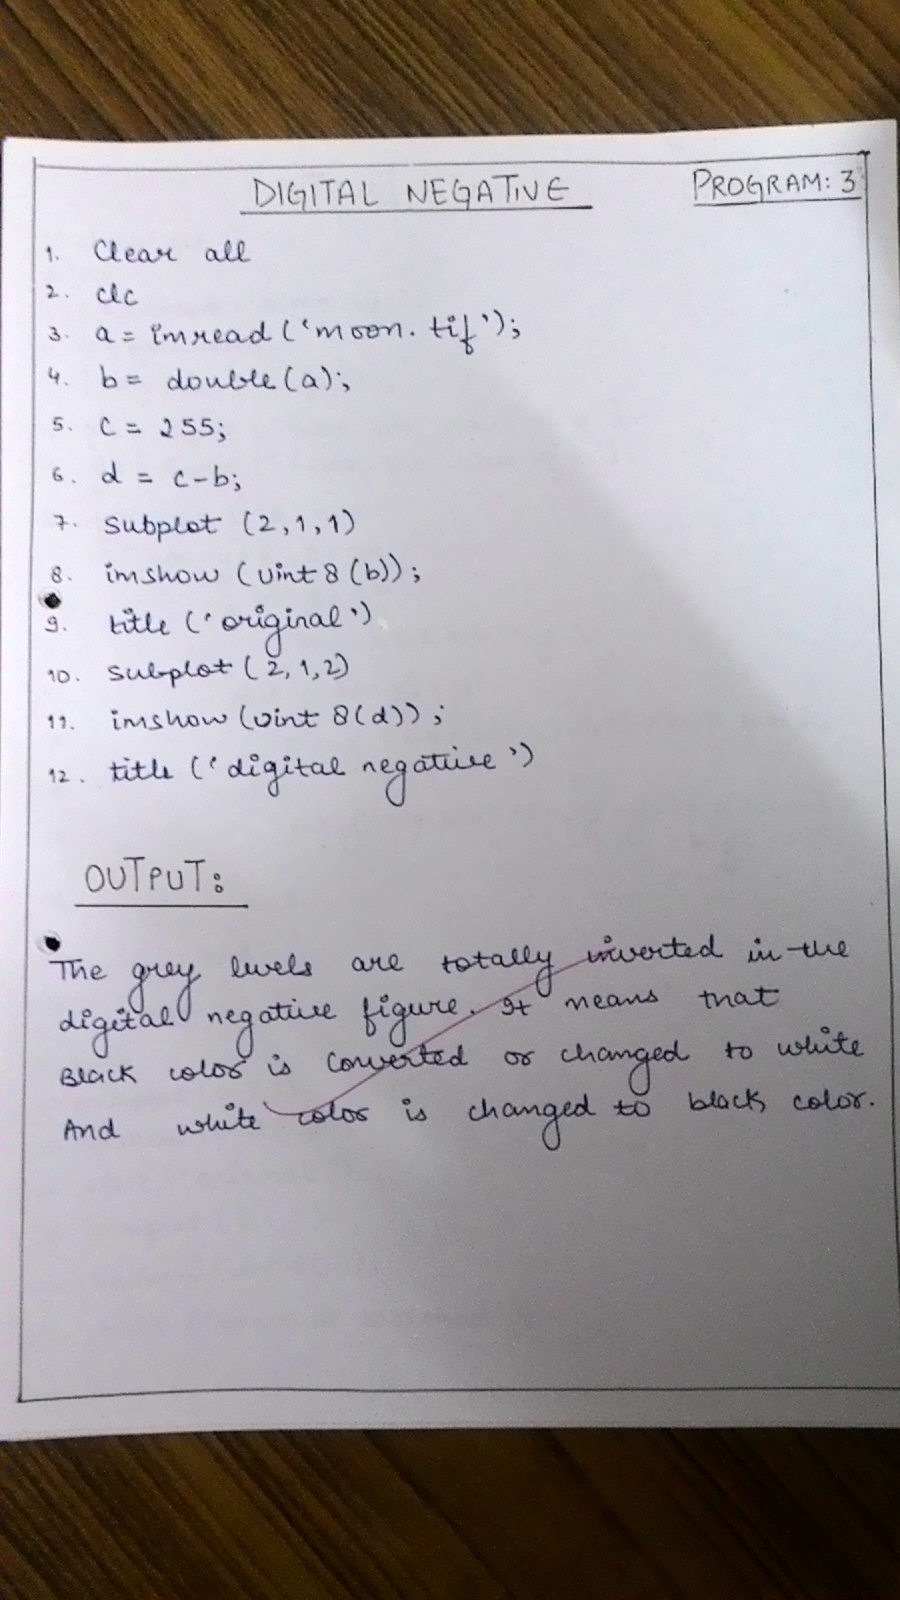 DIGITAL NEGATIVE PROGRAM: 3
1. Clear all
2. clc
3. a = imread ('moon. tif');
4. b = double (a);
5. C = 255;
6. d = c-b;
7. Subplot (2,1,1)
8. imshow (uint 8 (b));
9. title ('original')
10. subplot (2,1,2)
11. imshow (uint 8(d));
12. title ('digital negative')
OUTPUT:
The grey levels are totally inverted in the
digital negative figure. It means that
Black color is converted or changed to white
And white color is changed to black color.